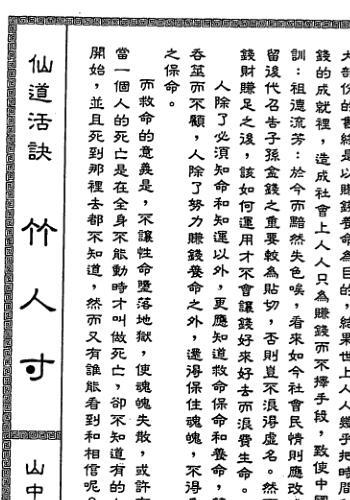 是以賺錢養命為目的,結果世上人人幾乎把時間
錢的成就裡,造成社會上人人只為賺錢而不擇手段,致使中國
訓:祖德流芳:於今而黯然失色唉,看來如今社會民情則應改
留後代召告子孫金錢之重要較為貼切,否則豈不浪得虛名。然
錢財賺足之後,該如何運用才不會讓錢好來好去而浪費生命。
人除了必須知命和知運以外,更應知道救命保命和養命,
吞筮而不顧,人除了努力賺錢養命之外,還得保住魂魄,不得
之保命。
而救命的意義是,不讓性命墮落地獄,使魂魄失散,或許有
當一個人的死亡是在全身不能動時才叫做死亡,卻不知道有的
開始,並且死到那裡去都不知道,然而又有誰能看到和相信呢?
仙道活訣 竹人寸 山中